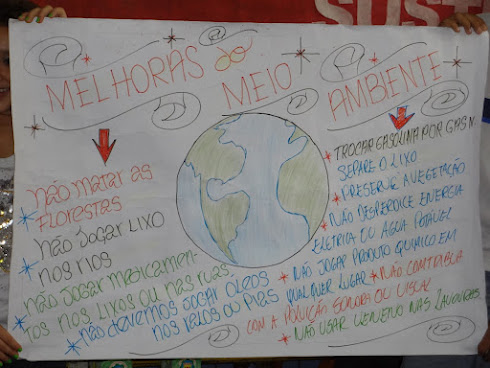 SUST
MELHORAS do
MEIO
AMBIENTE
não matar as
FLORESTAS
não JOGAR LIXO
nos RIOS
não JOGAR MEDICAMEN-
TOS NOS LIXOS OU NAS RUAS
não DEVEMOS JOGAR OLEOS
NOS RALOS OU PIAS
TROCAR GASOLINA POR GASN
SEPARE O LIXO
PRESERVE A VEGETAÇÃO
NÃO DESPERDICE ENERGIA
ELETRICA OU AGUA POTÁVEL
NÃO JOGAR PRODUTO QUIMICO EM
QUALQUER LUGAR
NÃO CONTRIBUA
COM A POLUIÇÃO SONORA OU VISUAL
NÃO USAR VENENO NAS LAVOURAS